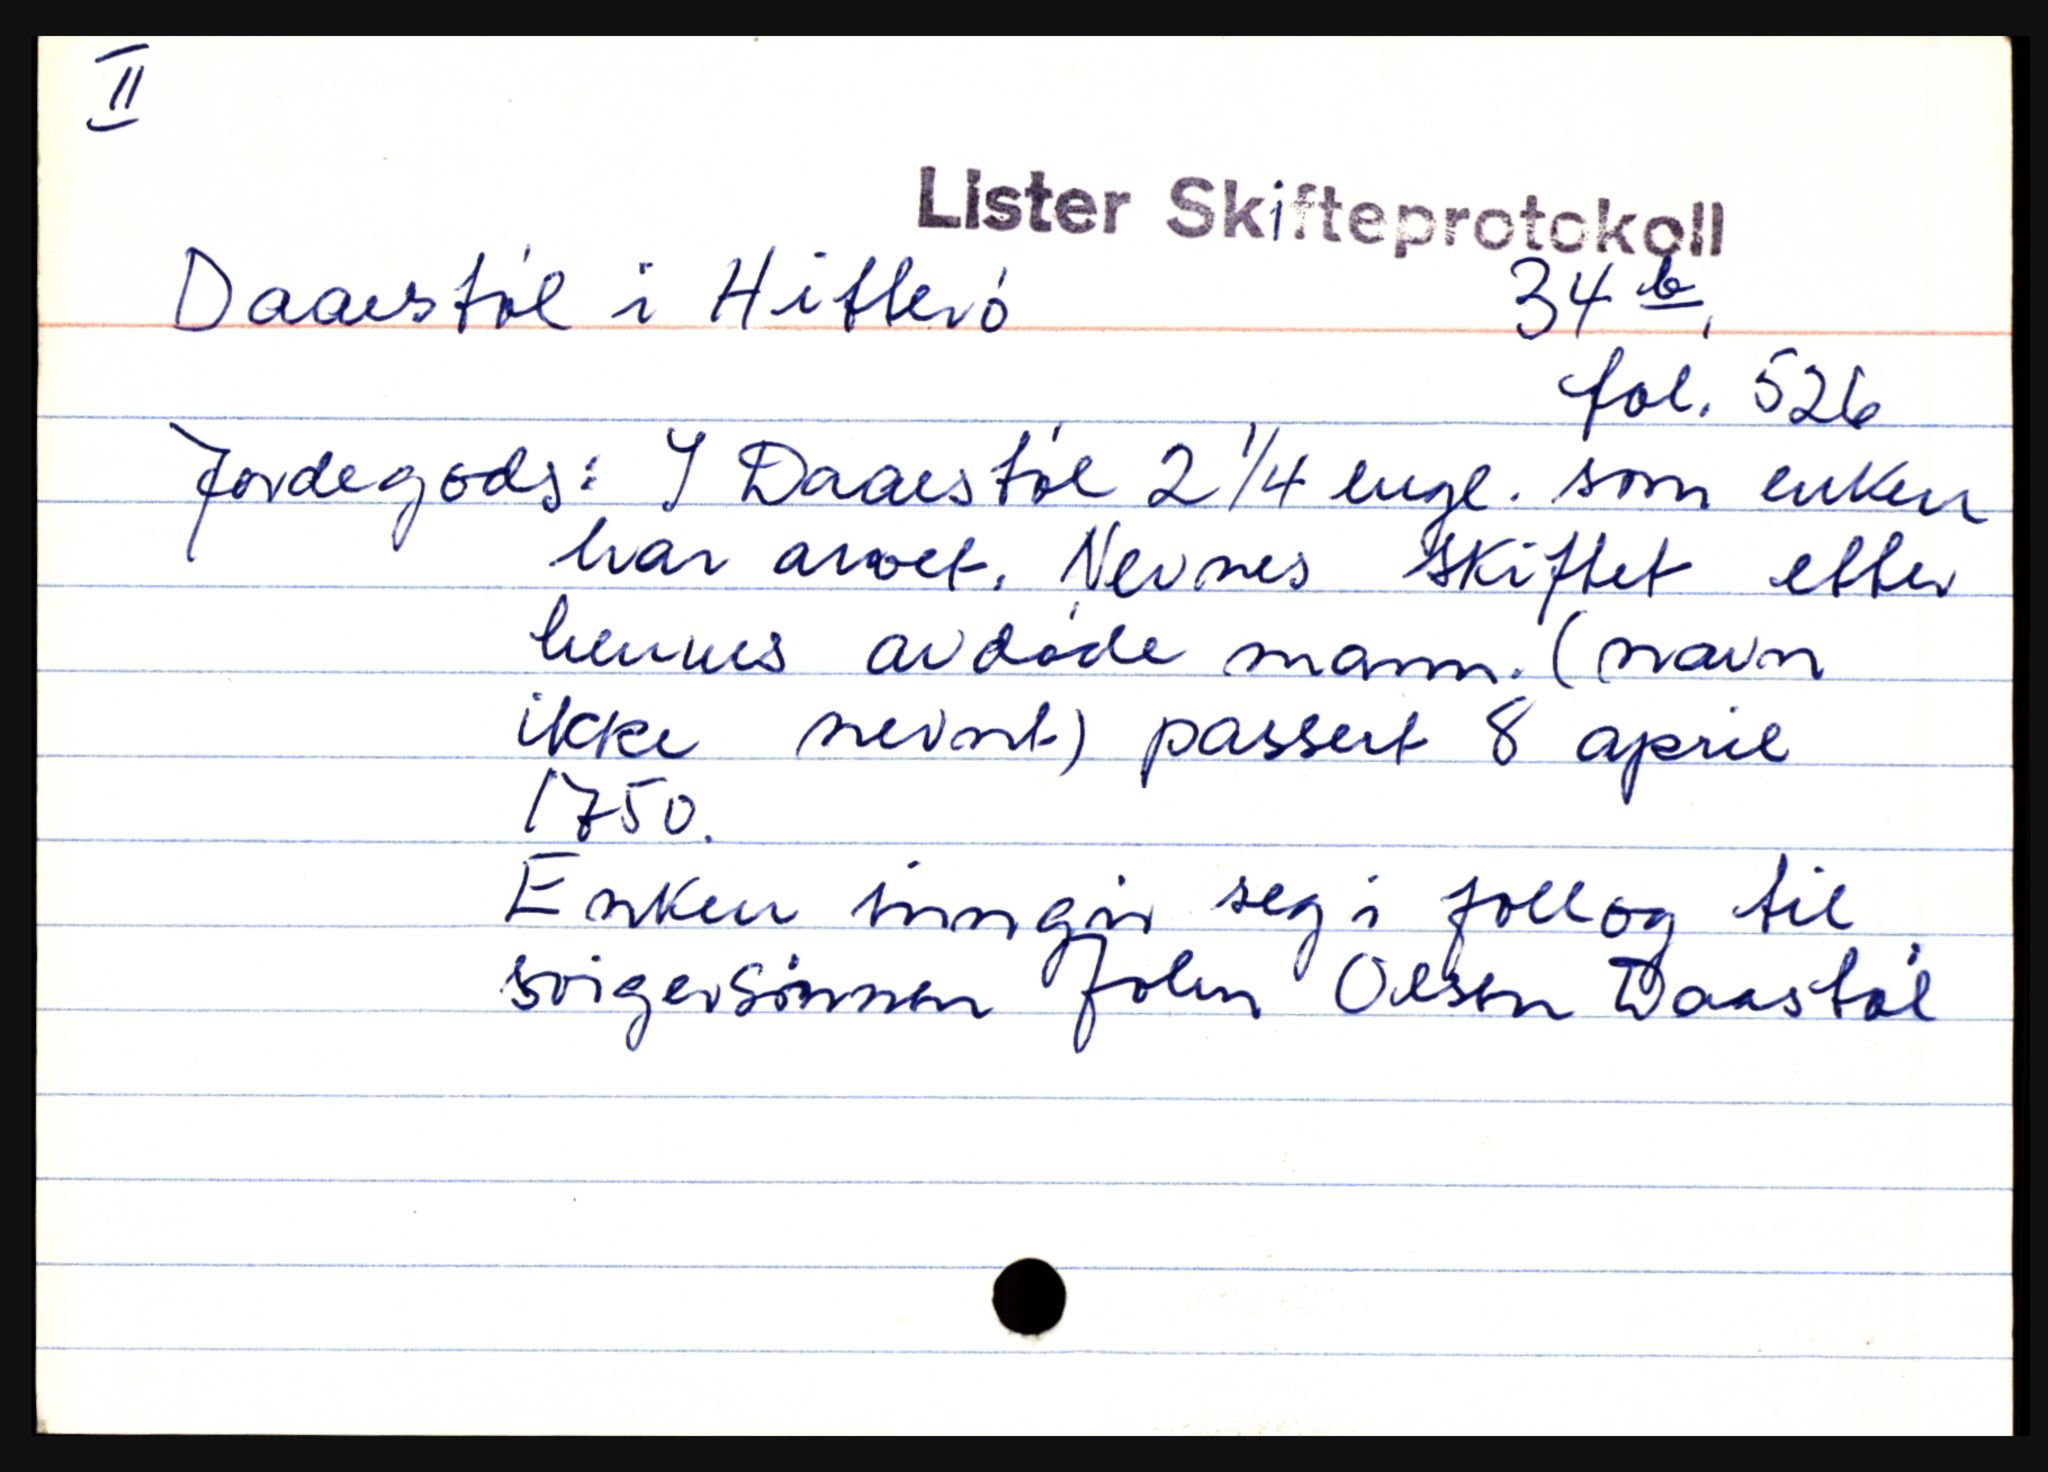 II
Lister Skifteprotokoll
Daaestøl i Hitterø 34 b,
fol. 526
Jordegods: I Daaestøl 2 1/4 engl. som enken
har arvet. Nevnes skiftet etter
hennes avdøde mann. (navn
ikke nevnt) passert 8 april
1750.
Enken inngir seg i follog til
svigersønnen John Olsen Daastøl